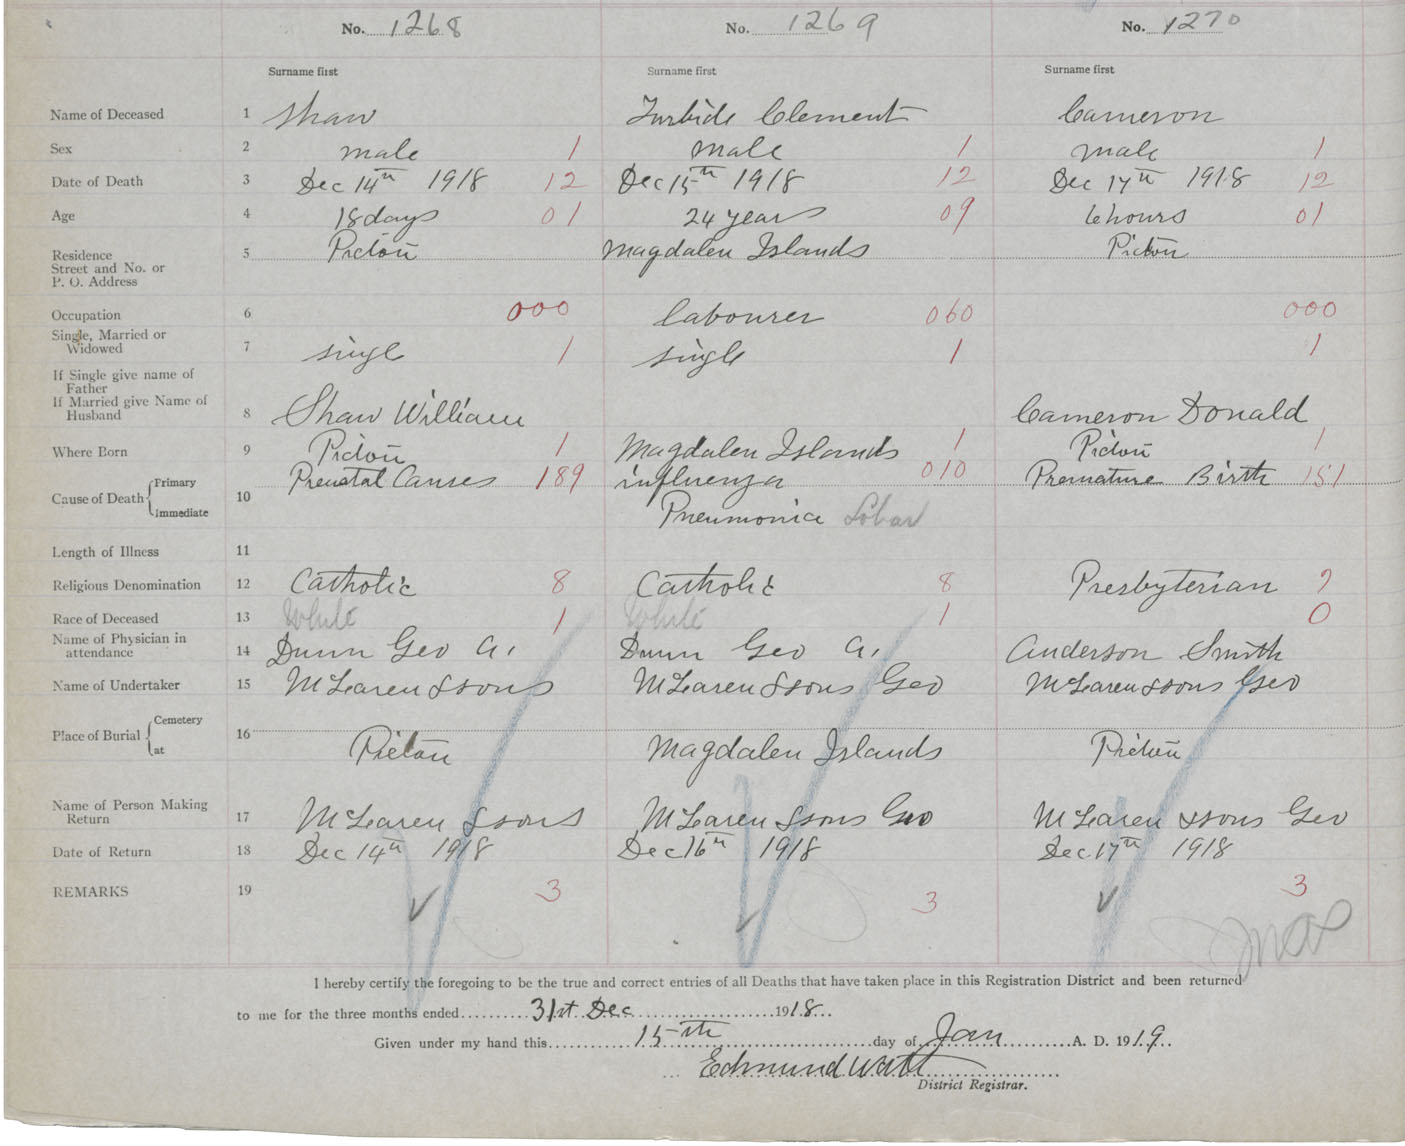 No. 1268 No. 1269 No. 1270
Surname first Surname first Surname first
Name of Deceased 1 Shaw Turbide Clement Cameron
Sex 2 male 1 male 1 male 1
Date of Death 3 Dec 14th 1918 12 Dec 15th 1918 12 Dec 17th 1918 12
Age 4 18 days 01 24 years 09 6 hours 01
Residence
Street and No. or
P. O. Address
5 Pictou Magdalen Islands Pictou
Occupation 6 000 labourer 060 000
Single, Married or
Widowed
7 single 1 single 1 1
If Single give name of
Father
If Married give Name of
Husband
8 Shaw William Cameron Donald
Where Born 9 Pictou 1 Magdalen Islands 1 Pictou 1
Cause of Death Primary Immediate 10 Prenatal Causes 189 influenza 010 Premature Birth 151
Pneumonia Lobar
Length of Illness 11
Religious Denomination 12 Catholic 8 Catholic 8 Presbyterian 7
Race of Deceased 13 White 1 White 1 0
Name of Physician in
attendance
14 Dunn Geo A. Dunn Geo A. Anderson Smith
Name of Undertaker 15 McLaren & sons McLaren & sons Geo McLaren & sons Geo
Place of Burial Cemetery at 16 Pictou Magdalen Islands Pictou
Name of Person Making
Return
17 McLaren & sons McLaren & sons Geo McLaren & sons Geo
Date of Return 18 Dec 14th 1918 Dec 16th 1918 Dec 17th 1918
REMARKS 19 3 3 3
I hereby certify the foregoing to be the true and correct entries of all Deaths that have taken place in this Registration District and been returned
to me for the three months ended 31st Dec 1918
Given under my hand this 15th day of Jan A. D. 1919
Edmund Watt
District Registrar.